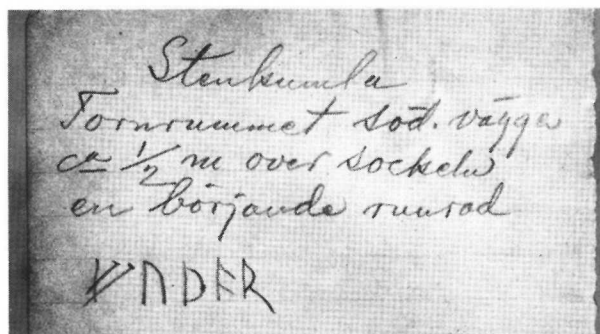 Stenkumla
Tornrummet söd. vägga
ca ½ m over sockeln
en börjande runrad
ᚠᚢᚦᚨᚱ